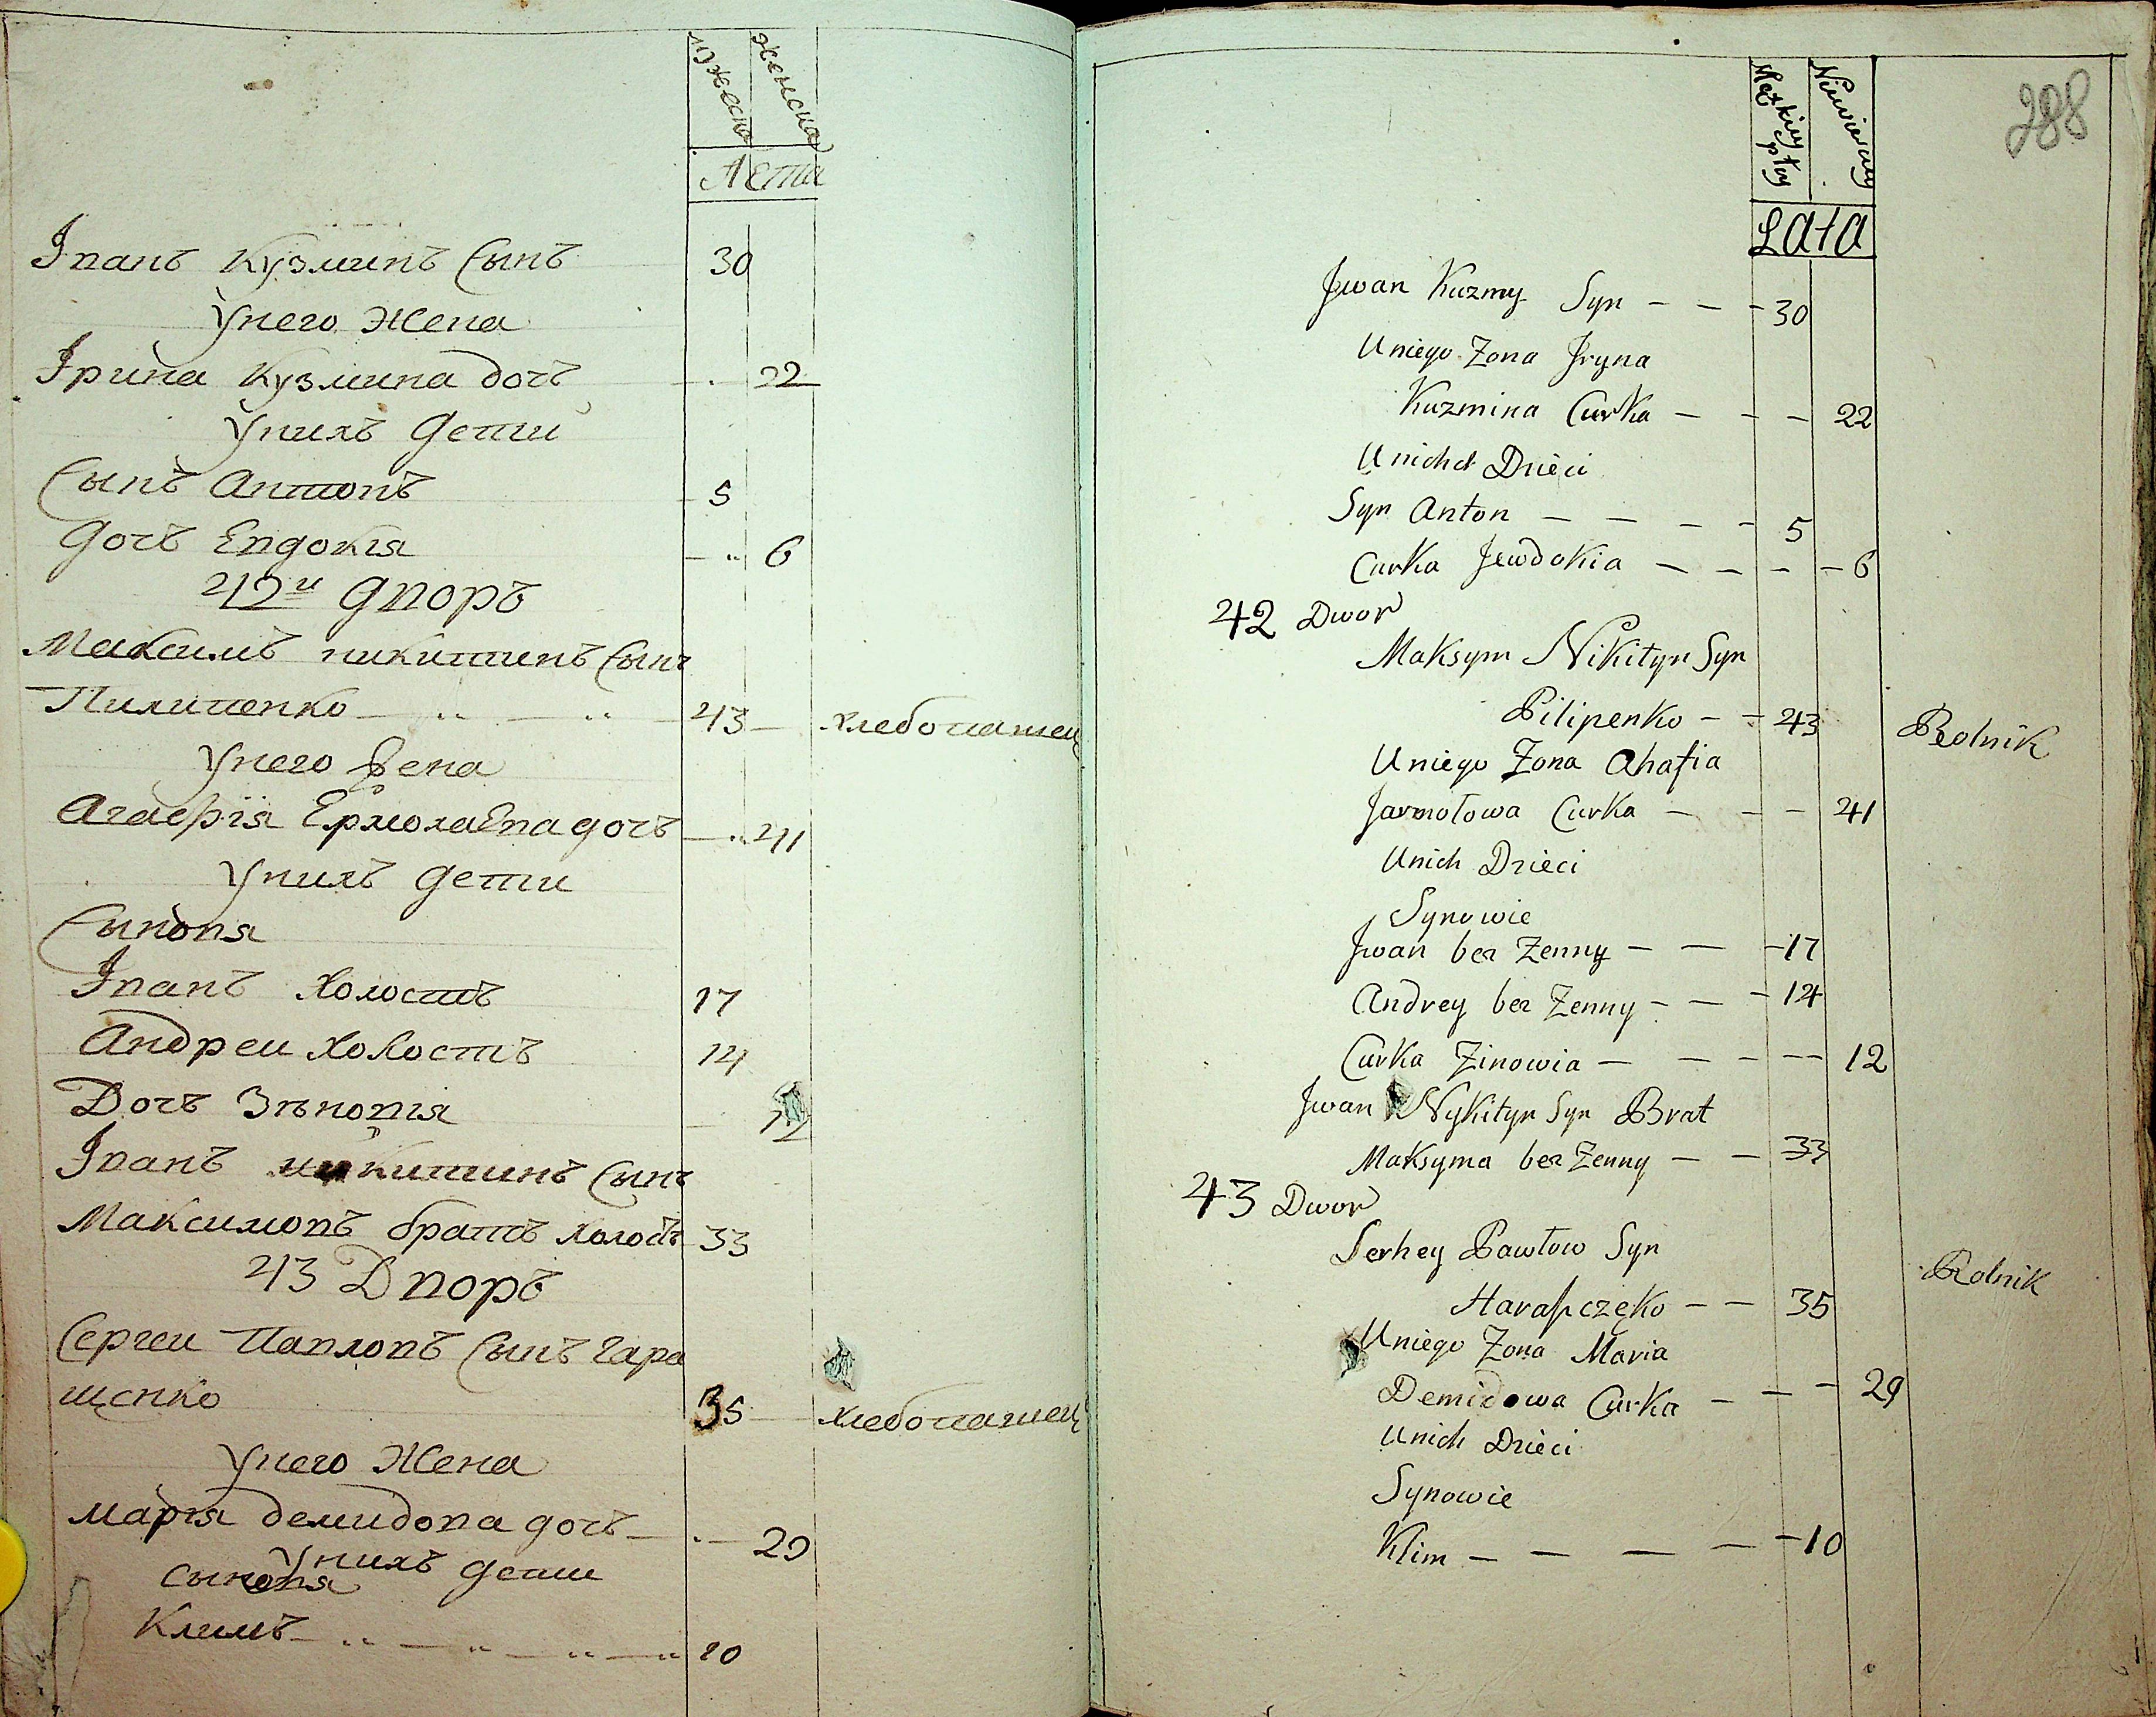 мужеска
женска
Лета
Іванъ Кузминъ Сынъ 30
Унего Жена
Ірина Кузмина дочь 22
Унихъ Дети
Сынъ Антонъ 5
Дочь Евдокія 6
42й Дворъ
Максимъ никитинъ Сынъ
Пилипенко 43 хлебопашец
Унего Жена
Агафія Ермолаева дочь 41
Унихъ Дети
Сыновя
Іванъ Холостъ 17
Андреи холостъ 14
Дочь Зѣновія 12
Іванъ никитинъ Сынъ
Максимовъ братъ холостъ 33
43 Дворъ
Сергеи Павловъ Сынъ Гара
щенко 35 хлебопашец
Унего Жена
марія демидова дочь 29
Унихъ Дети
сыновя
Климъ 10
288
Męzkiey płcy
Niewiesciey
Lata
Jwan Kuzmy Syn - - - 30
Uniego Zona Jryna
Kuzmina Curka - - - 22
Unich Dzieci
Syn Anton - - - - 5
Curka Jewdokia - - - - 6
42 Dwor
Maksym Nikityn Syn
Pilipenko - - 43 Rolnik
Uniego Zona Ahafia
Jarmołowa Curka - - - 41
Unich Dzieci
Synowie
Jwan bez Zenny - - - 17
Andrey bez Zenny - - - 14
Curka Zinowia - - - - - 12
Jwan Nykityn Syn Brat
Maksyma bez Zenny - - 33
43 Dwor
Serhey Pawłow Syn
Harapczęko - - 35 Rolnik
Uniego Zona Maria
Demidowa Curka - - - 29
Unich Dzieci
Synowie
Klim - - - - - 10